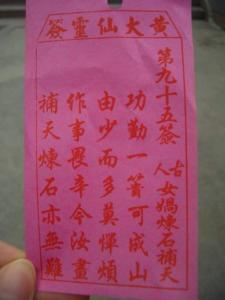 黃大仙靈簽
第九十五簽
古人 女媧煉石補天
功勤一簣可成山
由少而多莫憚煩
作事畏辛今汝畫
補天煉石亦無難